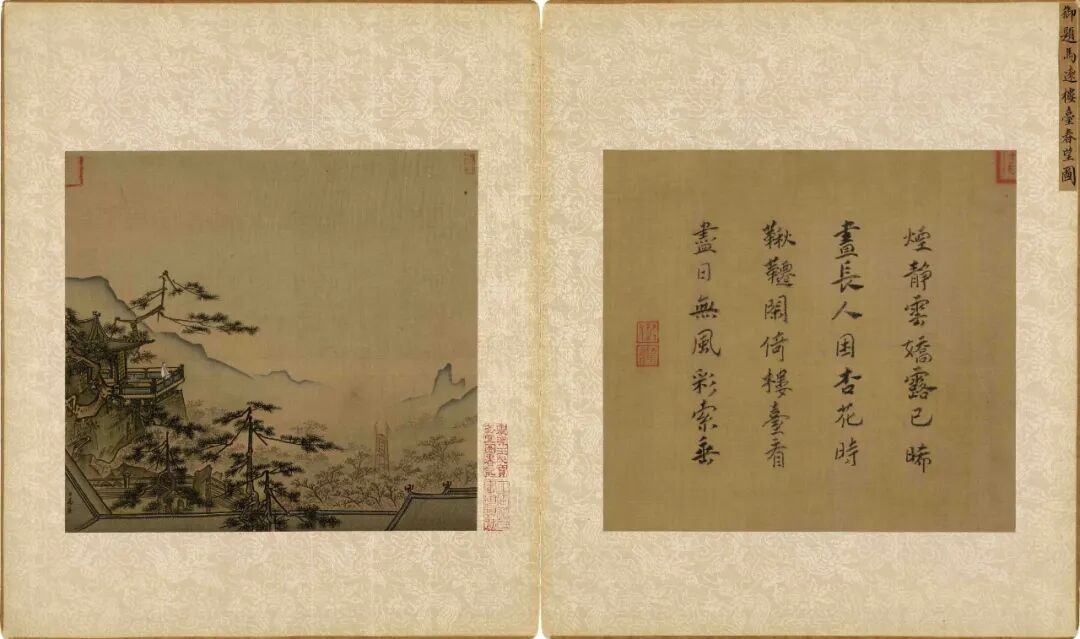 御題馬遠樓臺春望圖
煙靜雲嬌露已晞
晝長人困杏花時
鞦韆閑倚樓臺看
盡日無風彩索垂